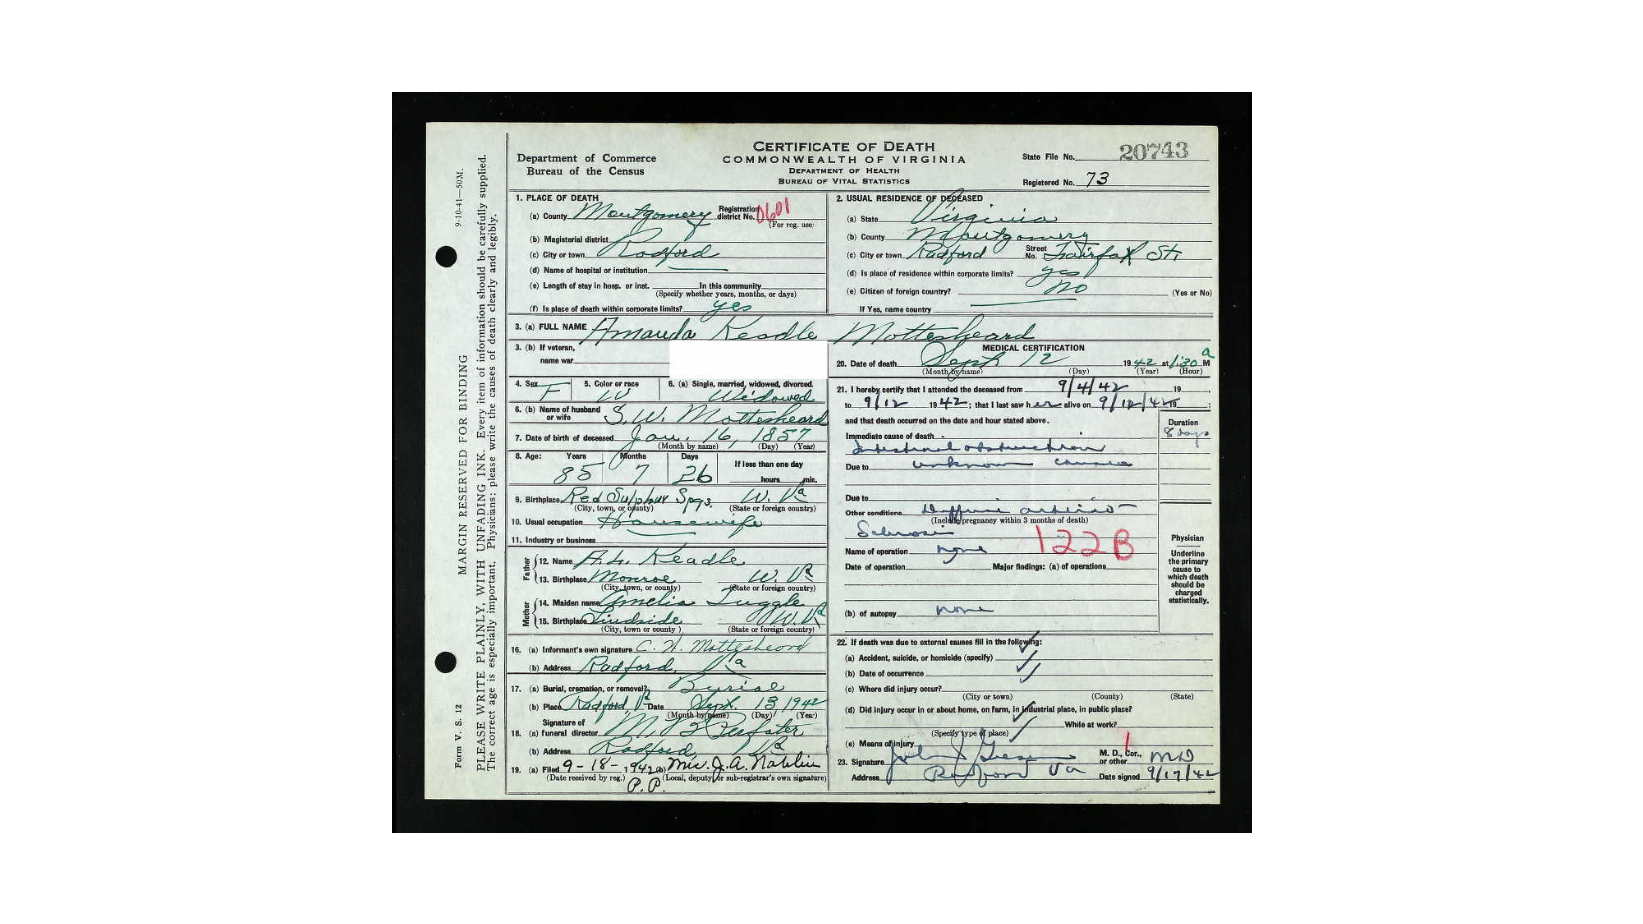 CERTIFICATE OF DEATH
COMMONWEALTH OF VIRGINIA
DEPARTMENT OF HEALTH
BUREAU OF VITAL STATISTICS
Department of Commerce
Bureau of the Census
State File No. 20743
Registered No. 73
9-10-41—50M.
MARGIN RESERVED FOR BINDING
Form V. S. 12
PLEASE WRITE PLAINLY, WITH UNFADING INK. Every item of information should be carefully supplied.
The correct age is especially important. Physicians; please write the causes of death clearly and legibly.
1. PLACE OF DEATH
(a) County Montgomery Registration district No. 0601
(For reg. use)
(b) Magisterial district
(c) City or town Radford
(d) Name of hospital or institution
(e) Length of stay in hosp. or inst. In this community
(Specify whether years, months, or days)
(f) Is place of death within corporate limits? yes
2. USUAL RESIDENCE OF DECEASED
(a) State Virginia
(b) County Montgomery
(c) City or town Radford Street No. Fairfax St
(d) Is place of residence within corporate limits? yes
(e) Citizen of foreign country? No (Yes or No)
If Yes, name country
3. (a) FULL NAME Amanda Keadle Mottesheard
3. (b) If veteran,
name war
4. Sex F 5. Color or race W 6. (a) Single, married, widowed, divorced. Widowed
6. (b) Name of husband or wife S. W. Mottesheard
7. Date of birth of deceased Jan. 16, 1857
(Month by name) (Day) (Year)
8. Age: Years Months Days If less than one day
85 7 26 hours min.
9. Birthplace Red Sulphur Spgs. W. Va
(City, town, or county) (State or foreign country)
10. Usual occupation Housewife
11. Industry or business
Father
12. Name A. L. Keadle
13. Birthplace Monroe W. Va
(City, town, or county) (State or foreign country)
Mother
14. Maiden name Amelia Tuggle
15. Birthplace Lindside W. Va
(City, town or county) (State or foreign country)
16. (a) Informant's own signature C. H. Mottesheard
(b) Address Radford, Va
17. (a) Burial, cremation, or removal? Burial
(b) Place Radford, Va Date Sept. 13, 1942
(Month by name) (Day) (Year)
Signature of
18. (a) funeral director
(b) Address Radford, Va
19. (a) Filed 9-18-1942 (b) Mrs. J. A. Noblin
(Date received by reg.) (Local, deputy or sub-registrar's own signature)
P.P.
MEDICAL CERTIFICATION
20. Date of death Sept 12 1942 at 1:30 a M
(Month by name) (Day) (Year) (Hour)
21. I hereby certify that I attended the deceased from 9/4/42 19
to 9/12 1942; that I last saw her alive on 9/12/42
and that death occurred on the date and hour stated above.
Duration
Immediate cause of death 8 days
Intestinal obstruction
Due to unknown causes
Due to
Other conditions Diffuse arterio-
(Include pregnancy within 3 months of death)
Sclerosis
122B
Name of operation none
Date of operation Major findings: (a) of operations
(b) of autopsy none
Physician
Underline the primary cause to which death should be charged statistically.
22. If death was due to external causes fill in the following:
(a) Accident, suicide, or homicide (specify)
(b) Date of occurrence
(c) Where did injury occur?
(City or town) (County) (State)
(d) Did injury occur in or about home, on farm, in industrial place, in public place?
While at work?
(Specify type of place)
(e) Means of injury
23. Signature John M. D., Cor., or other MD
Address Radford Va Date signed 9/17/42